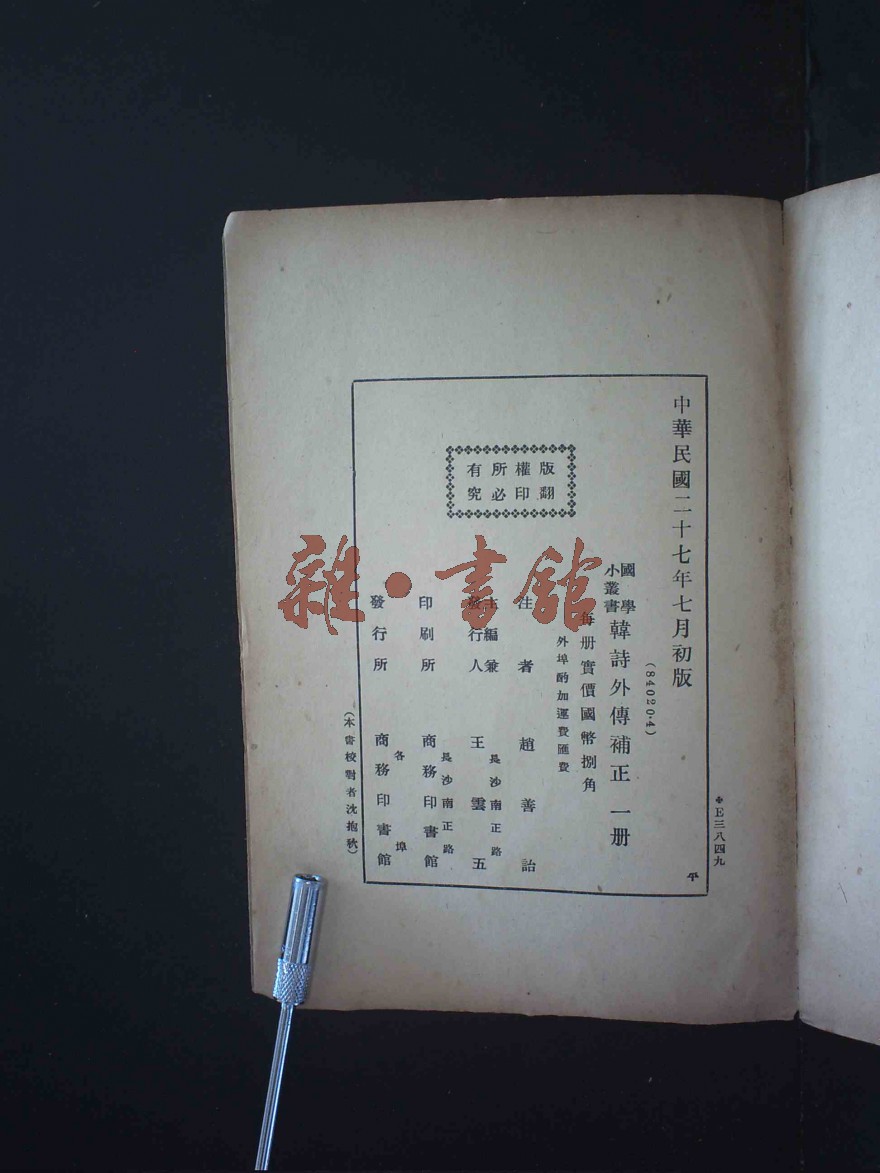 中華民國二十七年七月初版
(84020·4)
國學
小叢書
韓詩外傳補正 一册
每册實價國幣捌角
外埠酌加運費匯費
版權所有
翻印必究
注者 趙善詒
主編兼
發行人
長沙南正路
王雲五
印刷所
長沙南正路
商務印書館
發行所
各埠
商務印書館
(本書校對者沈抱秋)
E三八四九
平
雜·書館